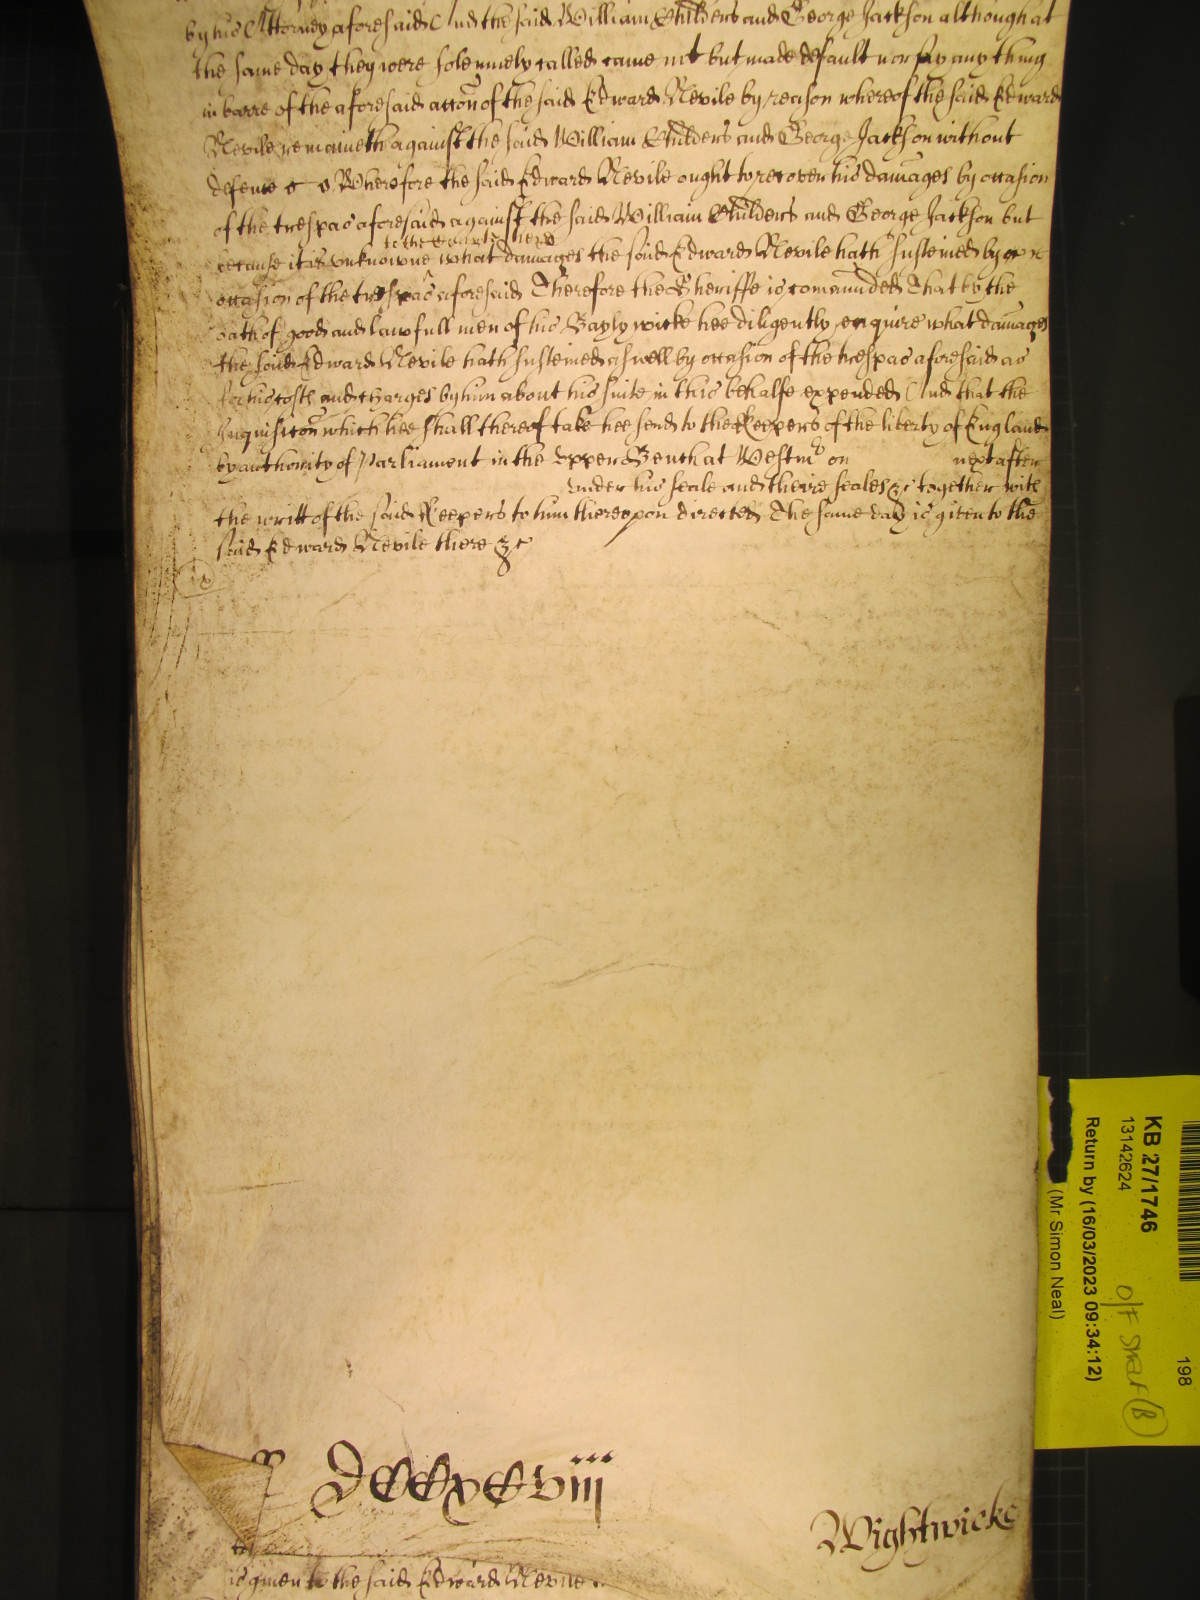 by his Attorney aforesaid And the said William Childers and George Jackson although at
the same day they were solemnely called came not but made default nor say any thing
in barre of the aforesaid accōn of the said Edward Nevile by reason whereof the said Edward
Nevile remaineth against the said William Childers and George Jackson without
defence &c Wherefore the said Edward Nevile ought to recover his damages by occasion
of the trespas aforesaid against the said William Childers and George Jackson but
to the Court here
because it is unknowne what damages the said Edward Nevile hath susteined by
occasion of the trespas aforesaid Therefore the Sheriffe is comaunded That by the
oath of good and lawfull men of his Baylywicke hee diligently enquire what damages
the said Edward Nevile hath susteined aswell by occasion of the trespas aforesaid as
for his costs and charges by him about his suite in this behalfe expended And that the
Inquisicōn which hee shall thereof take hee send to the Keepers of the liberty of England
by authority of Parliament in the Upper Bench at Westm on next after
under his seale and theire seales &c together with
the writt of the said Keepers to him thereupon directed The same day is given to the
said Edward Nevile there &c
DCCCxCviii
Wightwicke
is given to the said Edward Nevile
KB 27/1746
13142624
Return by (16/03/2023 09:34:12)
(Mr Simon Neal)
O/F
198